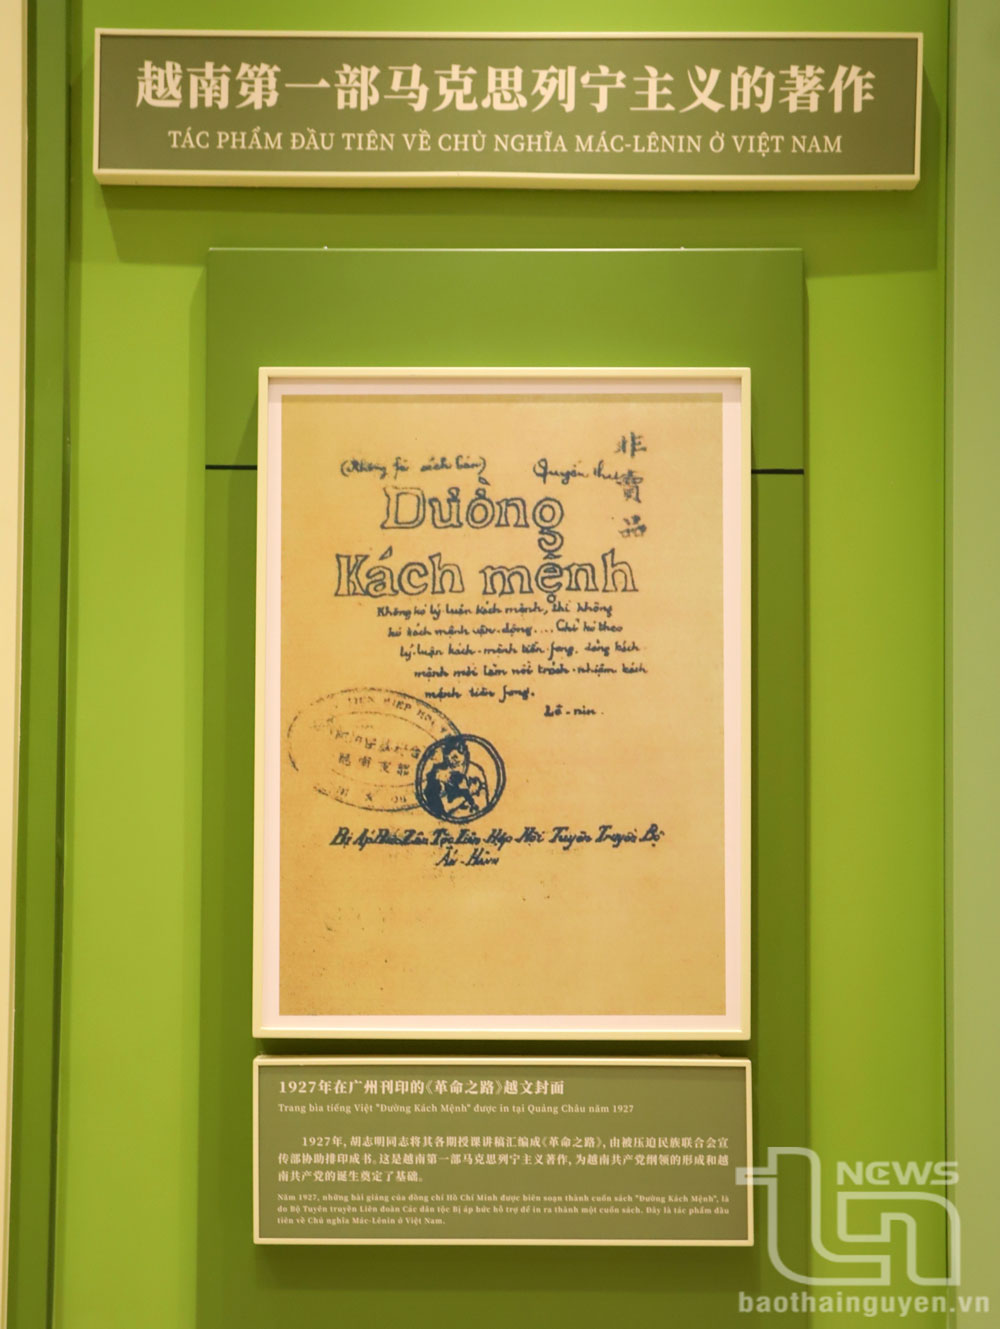 越南第一部马克思列宁主义的著作
TÁC PHẨM ĐẦU TIÊN VỀ CHỦ NGHĨA MÁC-LÊNIN Ở VIỆT NAM
非賣品
(Không fải sách bán)
Quyển thư
Đường
Kách mệnh
Không kó lý luận kách mệnh, thì không
kó kách mệnh vận-động.... Chỉ kó theo
lý-luận kách-mệnh tiền-fong, đảng kách
mệnh mới làm nổi trách-nhiệm kách
mệnh tiền fong.
Lê-nin.
Bị Áp Bức Dân Tộc Liên Hiệp Hội Tuyên Truyền Bộ
Ấn-Hành
1927年在广州刊印的《革命之路》越文封面
Trang bìa tiếng Việt "Đường Kách Mệnh" được in tại Quảng Châu năm 1927
1927年, 胡志明同志将其各期授课讲稿汇编成《革命之路》, 由被压迫民族联合会宣
传部协助排印成书。这是越南第一部马克思列宁主义著作, 为越南共产党纲领的形成和越
南共产党的诞生奠定了基础。
Năm 1927, những bài giảng của đồng chí Hồ Chí Minh được biên soạn thành cuốn sách "Đường Kách Mệnh", là
do Bộ Tuyên truyền Liên đoàn Các dân tộc Bị áp bức hỗ trợ để in ra thành một cuốn sách. Đây là tác phẩm đầu
tiên về Chủ nghĩa Mác-Lênin ở Việt Nam.
tn NEWS
baothainguyen.vn